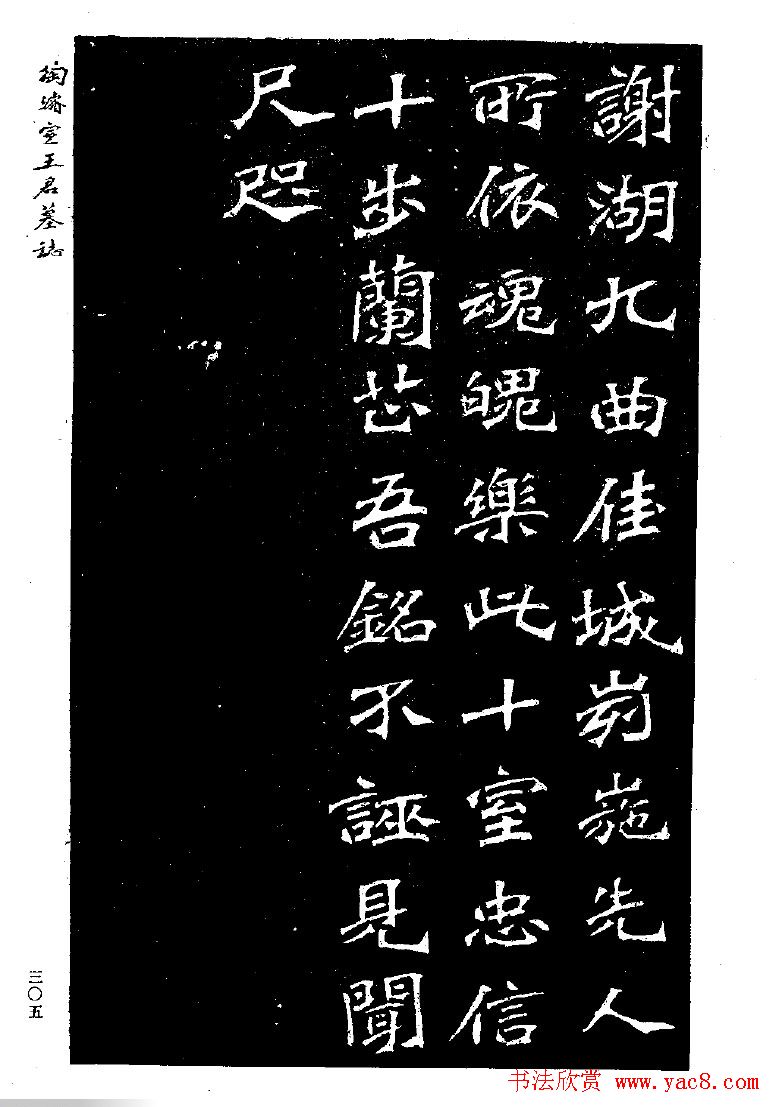 謝湖九曲佳城峛崺先人
所依魂魄樂此十室忠信
十步蘭芷吾銘不誣見聞
尺咫
陶濬宣王君墓誌
三〇五
书法欣赏 www.yac8.com